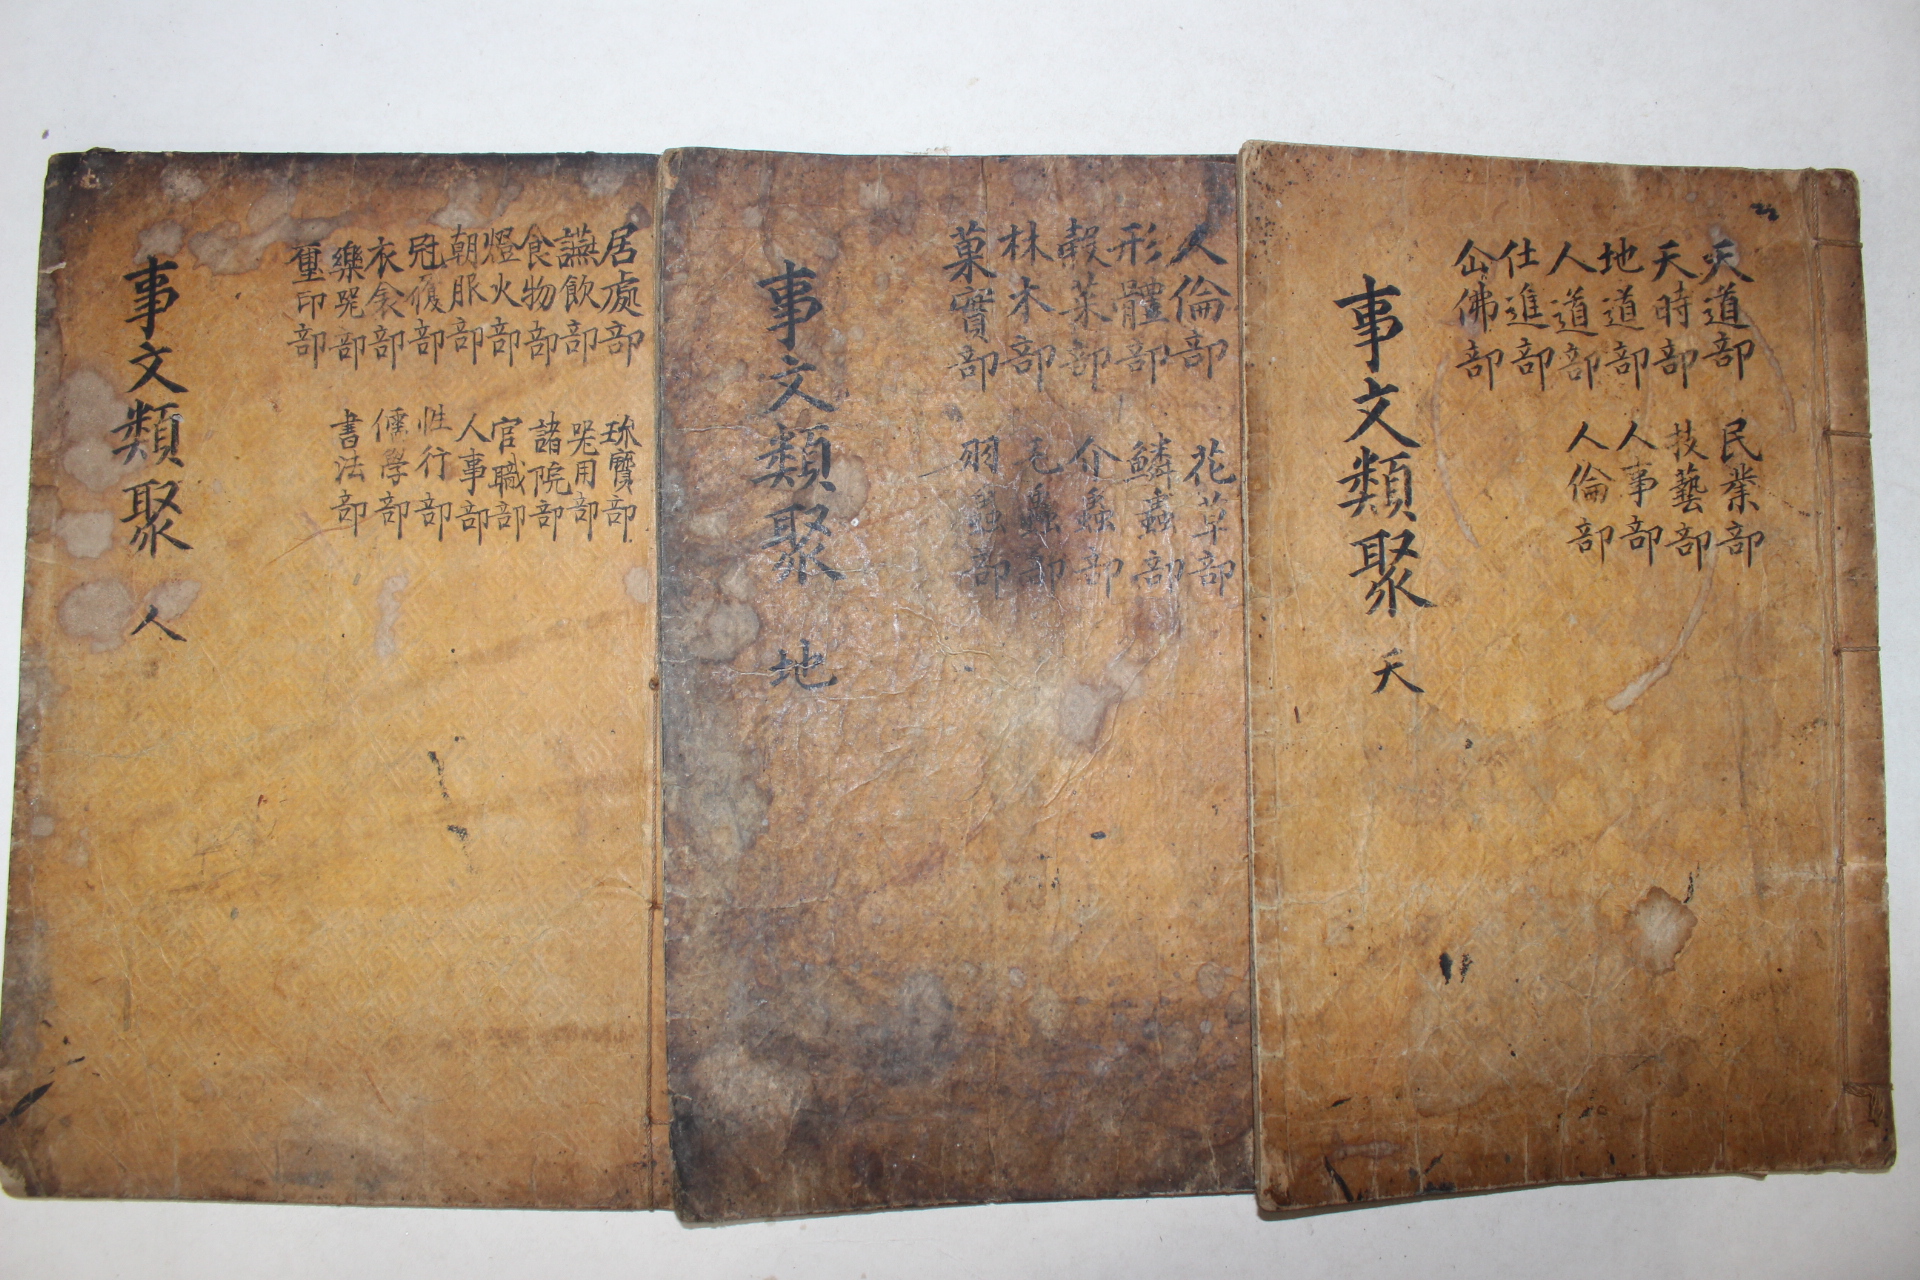 天道部
天時部
地道部
人道部
仕進部
仚佛部
民業部
技藝部
人事部
人倫部
事文類聚 天
人倫部
形體部
穀菜部
林木部
菓實部
花草部
鱗蟲部
介蟲部
毛蟲部
羽蟲部
事文類聚 地
居處部
讌飲部
食物部
燈火部
朝服部
冠履部
衣衾部
樂器部
璽印部
珎寶部
器用部
諸院部
官職部
人事部
性行部
儒學部
書法部
事文類聚 人